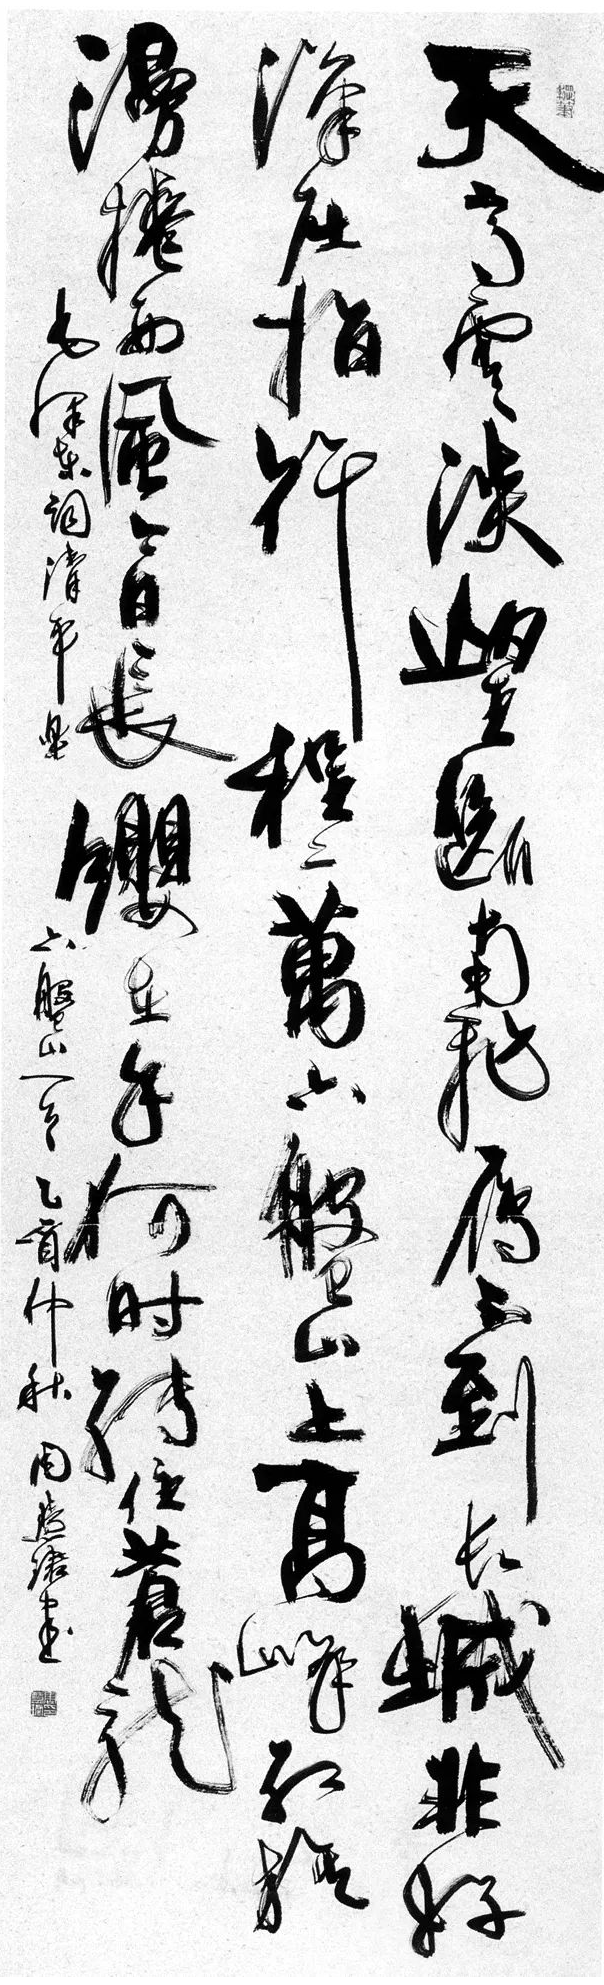 天高雲淡望斷南飛雁不到长城非好
漢屈指行程二萬六盤山上高峰紅旗
漫捲西風今日長纓在手何时縛住蒼龍
毛澤東詞清平樂六盤山一首乙酉仲秋周慧珺書